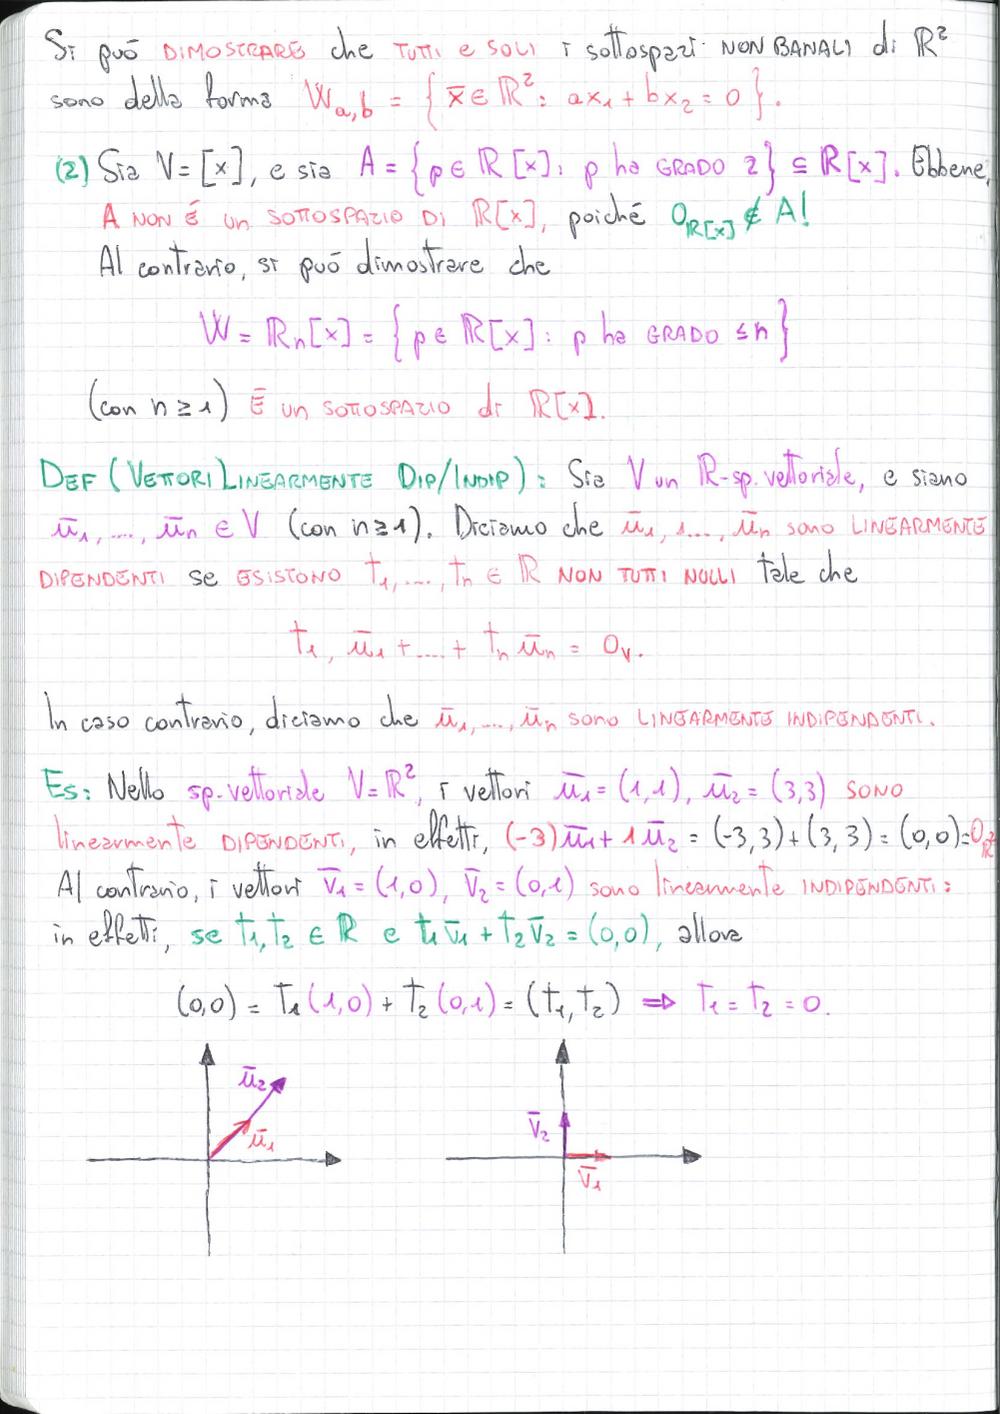 Si può DIMOSTRARE che TUTTI e SOLI i sottospazi NON BANALI di ℝ²
sono della forma W_{a,b} = { x̄ ∈ ℝ² : ax₁ + bx₂ = 0 }.
(2) Sia V = [x], e sia A = { p ∈ ℝ[x] : p ha GRADO 2 } ⊆ ℝ[x]. Ebbene,
A NON É un SOTTOSPAZIO DI ℝ[x], poiché 0_{ℝ[x]} ∉ A!
Al contrario, si può dimostrare che
W = ℝₙ[x] = { p ∈ ℝ[x] : p ha GRADO ≤ n }
(con n ≥ 1) È un SOTTOSPAZIO di ℝ[x].
DEF (VETTORI LINEARMENTE DIP/INDIP): Sia V un ℝ-sp. vettoriale, e siano
ū₁, ...., ūₙ ∈ V (con n ≥ 1). Diciamo che ū₁, ,..., ūₙ sono LINEARMENTE
DIPENDENTI se ESISTONO t₁, ..., tₙ ∈ ℝ NON TUTTI NULLI tale che
t₁, ū₁ + .... + tₙ ūₙ = 0_V.
In caso contrario, diciamo che ū₁, ..., ūₙ sono LINEARMENTE INDIPENDENTI.
Es: Nello sp. vettoriale V = ℝ², i vettori ū₁ = (1,1), ū₂ = (3,3) SONO
linearmente DIPENDENTI, in effetti, (-3)ū₁ + 1ū₂ = (-3,3) + (3,3) = (0,0) = 0_{ℝ²}
Al contrario, i vettori v̄₁ = (1,0), v̄₂ = (0,1) sono linearmente INDIPENDENTI:
in effetti, se t₁, t₂ ∈ ℝ e t₁v̄₁ + t₂v̄₂ = (0,0), allora
(0,0) = t₁(1,0) + t₂(0,1) = (t₁, t₂) ⇒ t₁ = t₂ = 0.
ū₂
ū₁
v̄₂
v̄₁